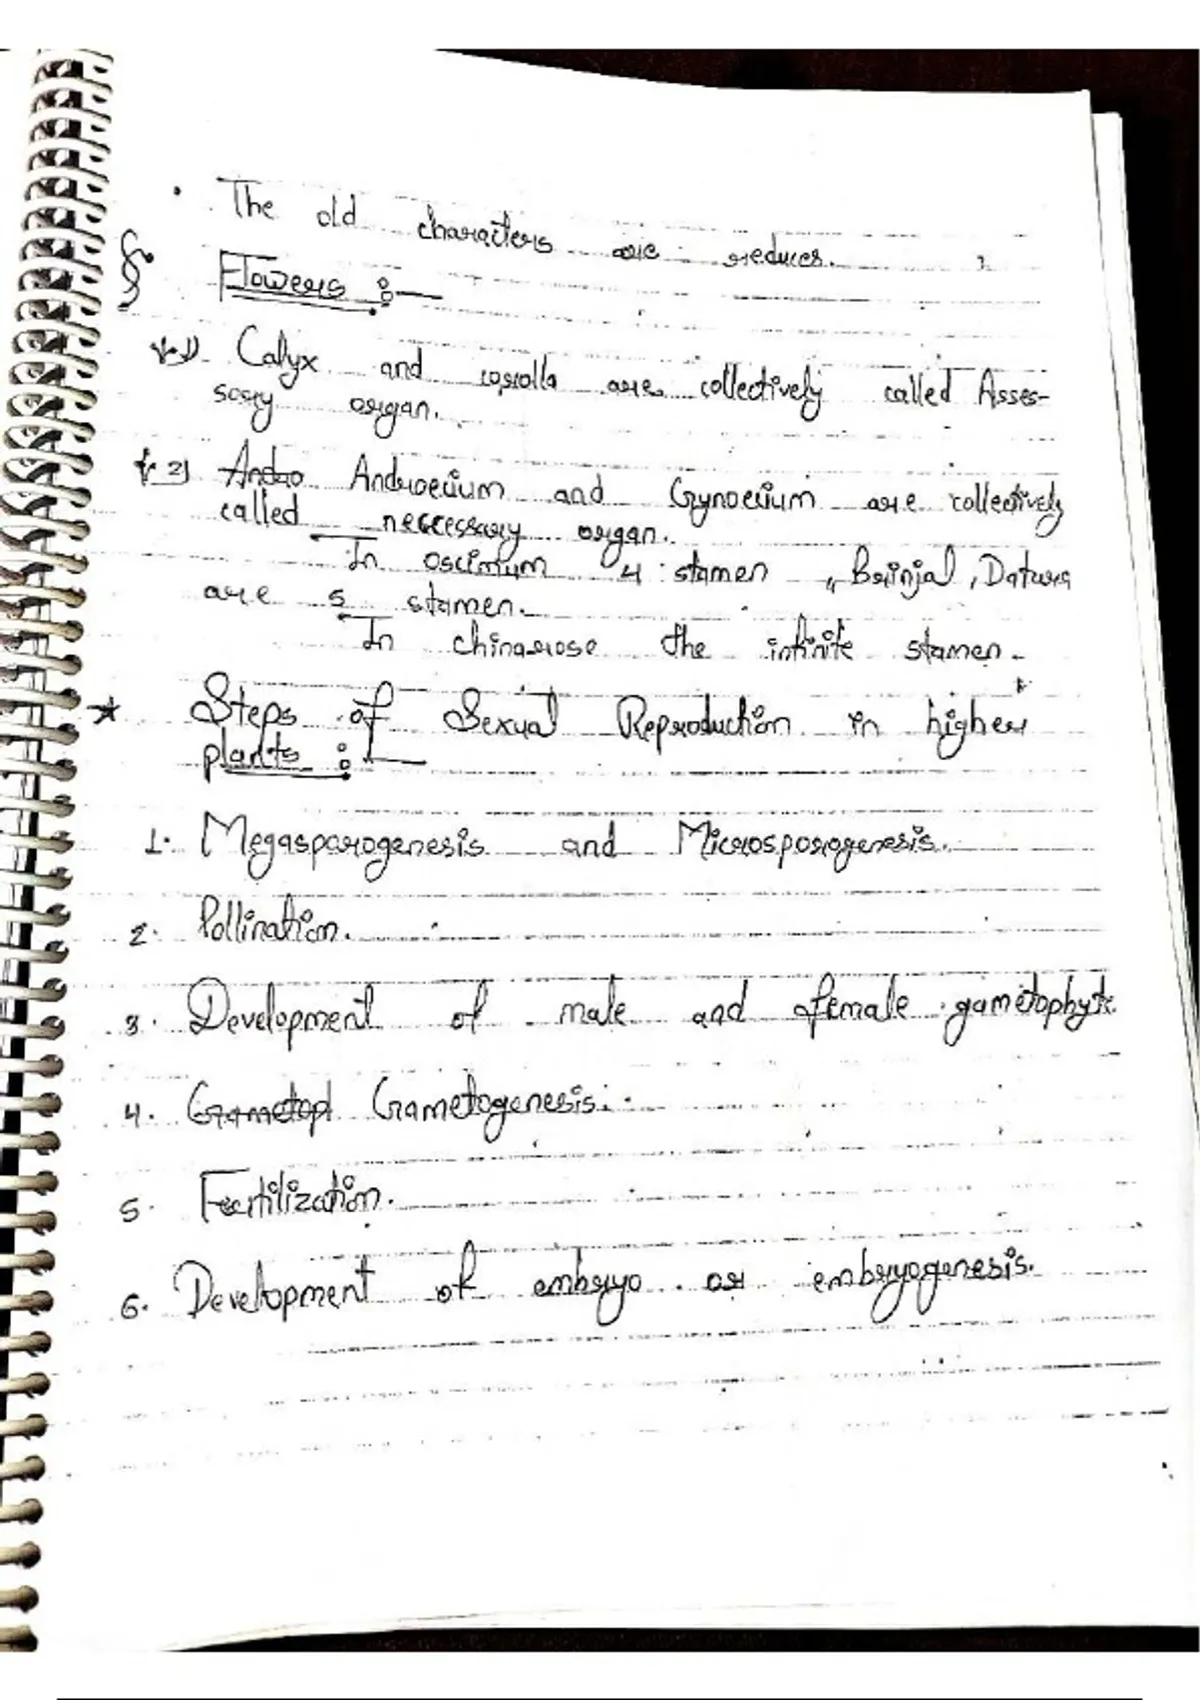 • The old characters are reduces.
Flowers :-
1) Calyx and corolla are collectively called Asses-
sory organ.
2) Andro Androecium and Gynoecium are collectively
called neccessary organ.
In oscimum 4 stamen, Brinjal, Datura
are 5 stamen.
In chinarose the infinite stamen.
★ Steps of Sexual Reproduction in higher
plants :-
1. Megasporogenesis and Microsporogenesis.
2. Pollination.
3. Development of male and female gametophyte.
4. Gametop Gametogenesis.
5. Fertilization.
6. Development of embryo or embryogenesis.